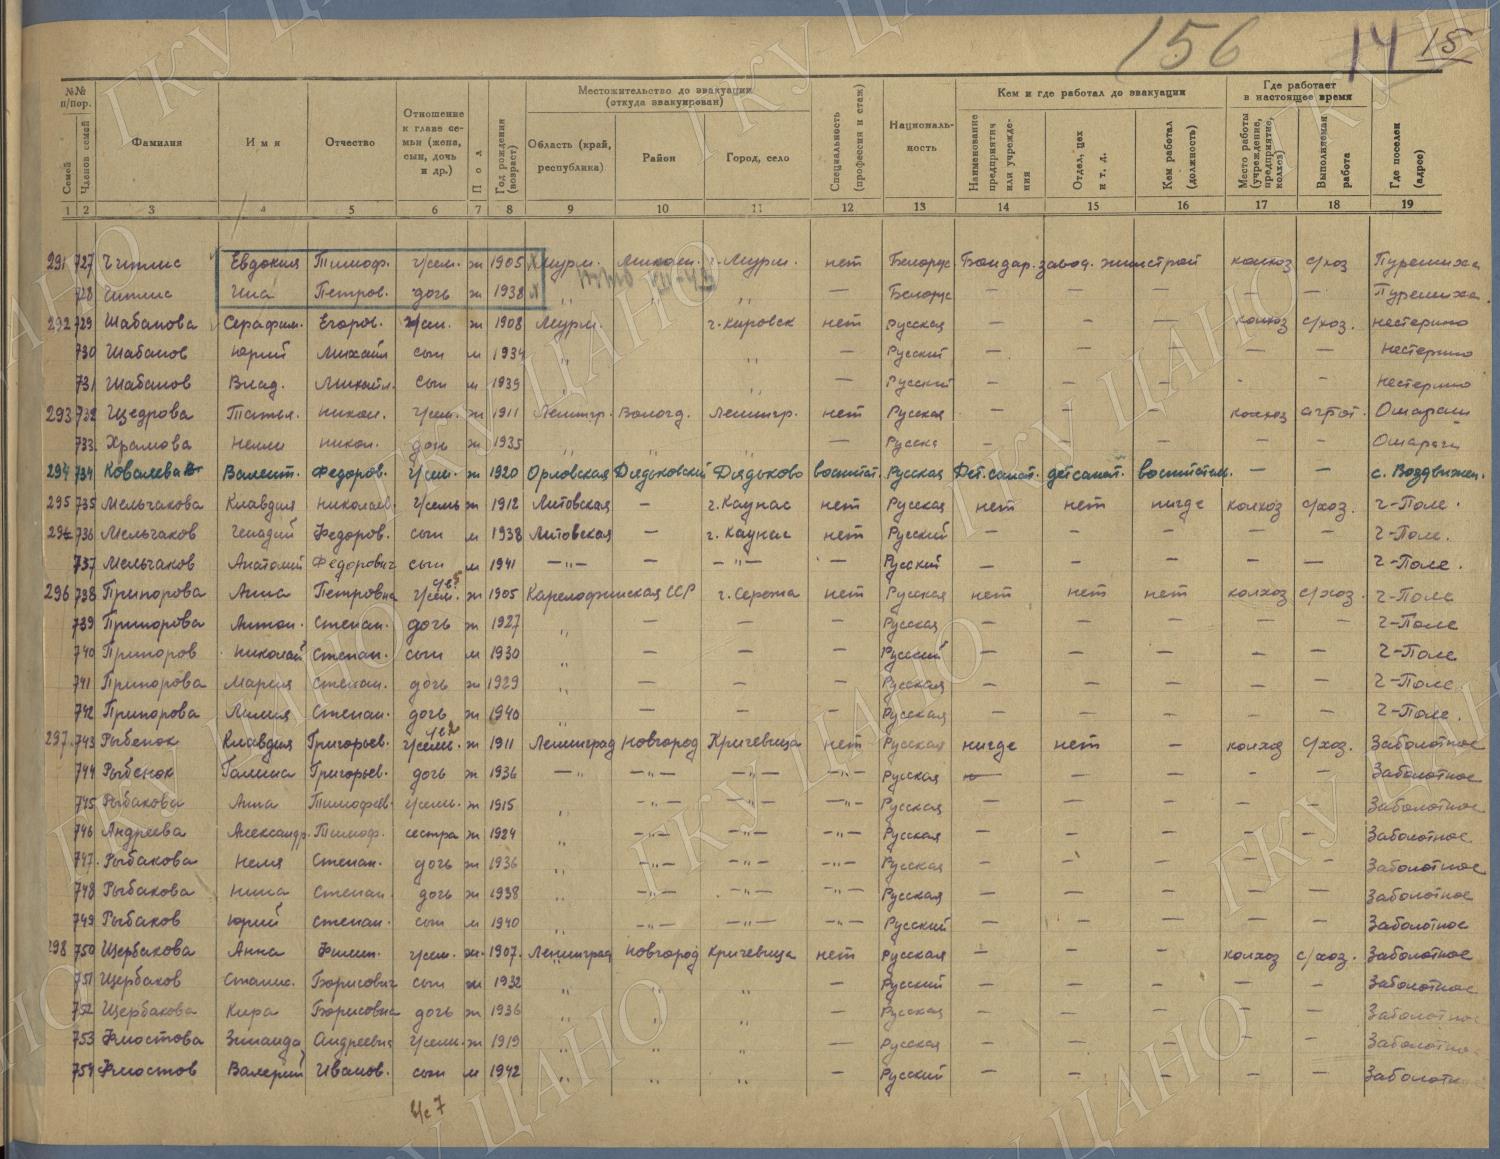 156 14 15
№№ п/пор.
Местожительство до эвакуации (откуда эвакуирован)
Кем и где работал до эвакуации
Где работает в настоящее время
Семей
Членов семей
Фамилия
Имя
Отчество
Отношение к главе семьи (жена, сын, дочь и др.)
Пол
Год рождения (возраст)
Область (край, республика)
Район
Город, село
Специальность (профессия и стаж)
Националь-ность
Наименование предприятия или учреждения
Отдел, цех и т. д.
Кем работал (должность)
Место работы (учреждение, предприятие, колхоз)
Выполняемая работа
Где поселен (адрес)
1 2 3 4 5 6 7 8 9 10 11 12 13 14 15 16 17 18 19
291 727 Евдокия Тимоф. г/сем. ж 1905 Мурм. г. Мурм. нет Белорус Бондар. завод колхоз с/хоз Пуремиха
728 Петров. дочь ж 1938 " " — Белорус — — — — — Пуремиха
292 729 Шабанова Серафим. Егоров. ж 1908 Мурм. г. Кировск нет Русская — — — колхоз с/хоз. Нестерино
730 Шабанов Юрий Михайл сын м 1934 " " — Русский — — — — — Нестерино
731 Шабанов Влад. Михайл. сын м 1939 " " — Русский — — — - — Нестерино
293 732 Щедрова Татья. Никол. г/сем. ж 1911 Ленингр. Вологд. Ленингр. нет Русская — — — колхоз Омараш
733 Храмова Нелли Никол. дочь ж 1935 " " " — Русска - — — — —
294 734 Ковалева Валент. Федоров. г/сем. ж 1920 Орловская Дядьковский Дядьково воспитат. Русская Дет. санат. детсанат. воспитатель. — — с. Воздвижен.
295 735 Мельчакова Клавдия Николаев. г/семь ж 1912 Литовская — г. Каунас нет Русская нет нет нигде колхоз с/хоз. Ч-Поле.
736 Мельчаков Генадий Федоров. сын м 1938 Литовская — г. Каунас нет Русский — — — — — Ч-Поле.
737 Мельчаков Анатолий Федорович сын м 1941 —"— — —"— — Русский — — — — — Ч-Поле.
296 738 Припорова Анна Петровна г/сем. ж 1905 Карелофинская ССР г. Сережа нет Русская нет нет нет колхоз с/хоз. Ч-Поле
739 Припорова Антон. Степан. дочь ж 1927 " — — — Русская — — — — — Ч-Поле
740 Припоров Николай Степан. сын м 1930 " — — — Русский — — — — — Ч-Поле
741 Припорова Мария Степан. дочь ж 1929 " — — — Русская — — — — — Ч-Поле
742 Припорова Лилия Степан. дочь ж 1940 " — — — Русская — — — — — Ч-Поле.
297. 743 Рыбенок Клавдия Григорьев. г/семь. ж 1911 Ленинград Новгород Кричевица нет Русская нигде нет — колхоз с/хоз. Заболотное
744 Рыбенок Галина Григорьев. дочь ж 1936 —"— —"— —"— —"— Русская — — — - — Заболотное
745 Рыбакова Анна Тимофеев. г/семь. ж 1915 " —"— —"— —"— Русская — — — — — Заболотное
746 Андреева Александр. Тимоф. сестра ж 1924 " —"— —"— —"— Русская — — — — — Заболотное
747. Рыбакова Неля Степан. дочь ж 1936 " —"— —"— —"— Русская — — — — — Заболотное
748 Рыбакова Нина Степан. дочь ж 1938 —"— —"— —"— Русская — — — — — Заболотное
749 Рыбаков Юрий Степан. сын м 1940 —"— —"— —"— Русский — — — — — Заболотное
298 750 Щербакова Анна Филип. г/сем. ж. 1907. Ленинград Новгород Кричевица нет Русская — — — колхоз с/хоз. Заболотное
751 Щербаков Станис. Борисович сын ж 1932 " " " — Русский — — — — — Заболотное
752 Щербакова Кира Борисовна дочь ж 1936 " " " — Русская — — — — — Заболотное
753 Хлостова Зинаида Андреевна г/семь. ж 1919 " " " — Русская — — — — — Заболотное
754 Хлостов Валерий Иванов. сын м 1942 " " " — Русский — — — — — Заболотн
ГКУ ЦАНО